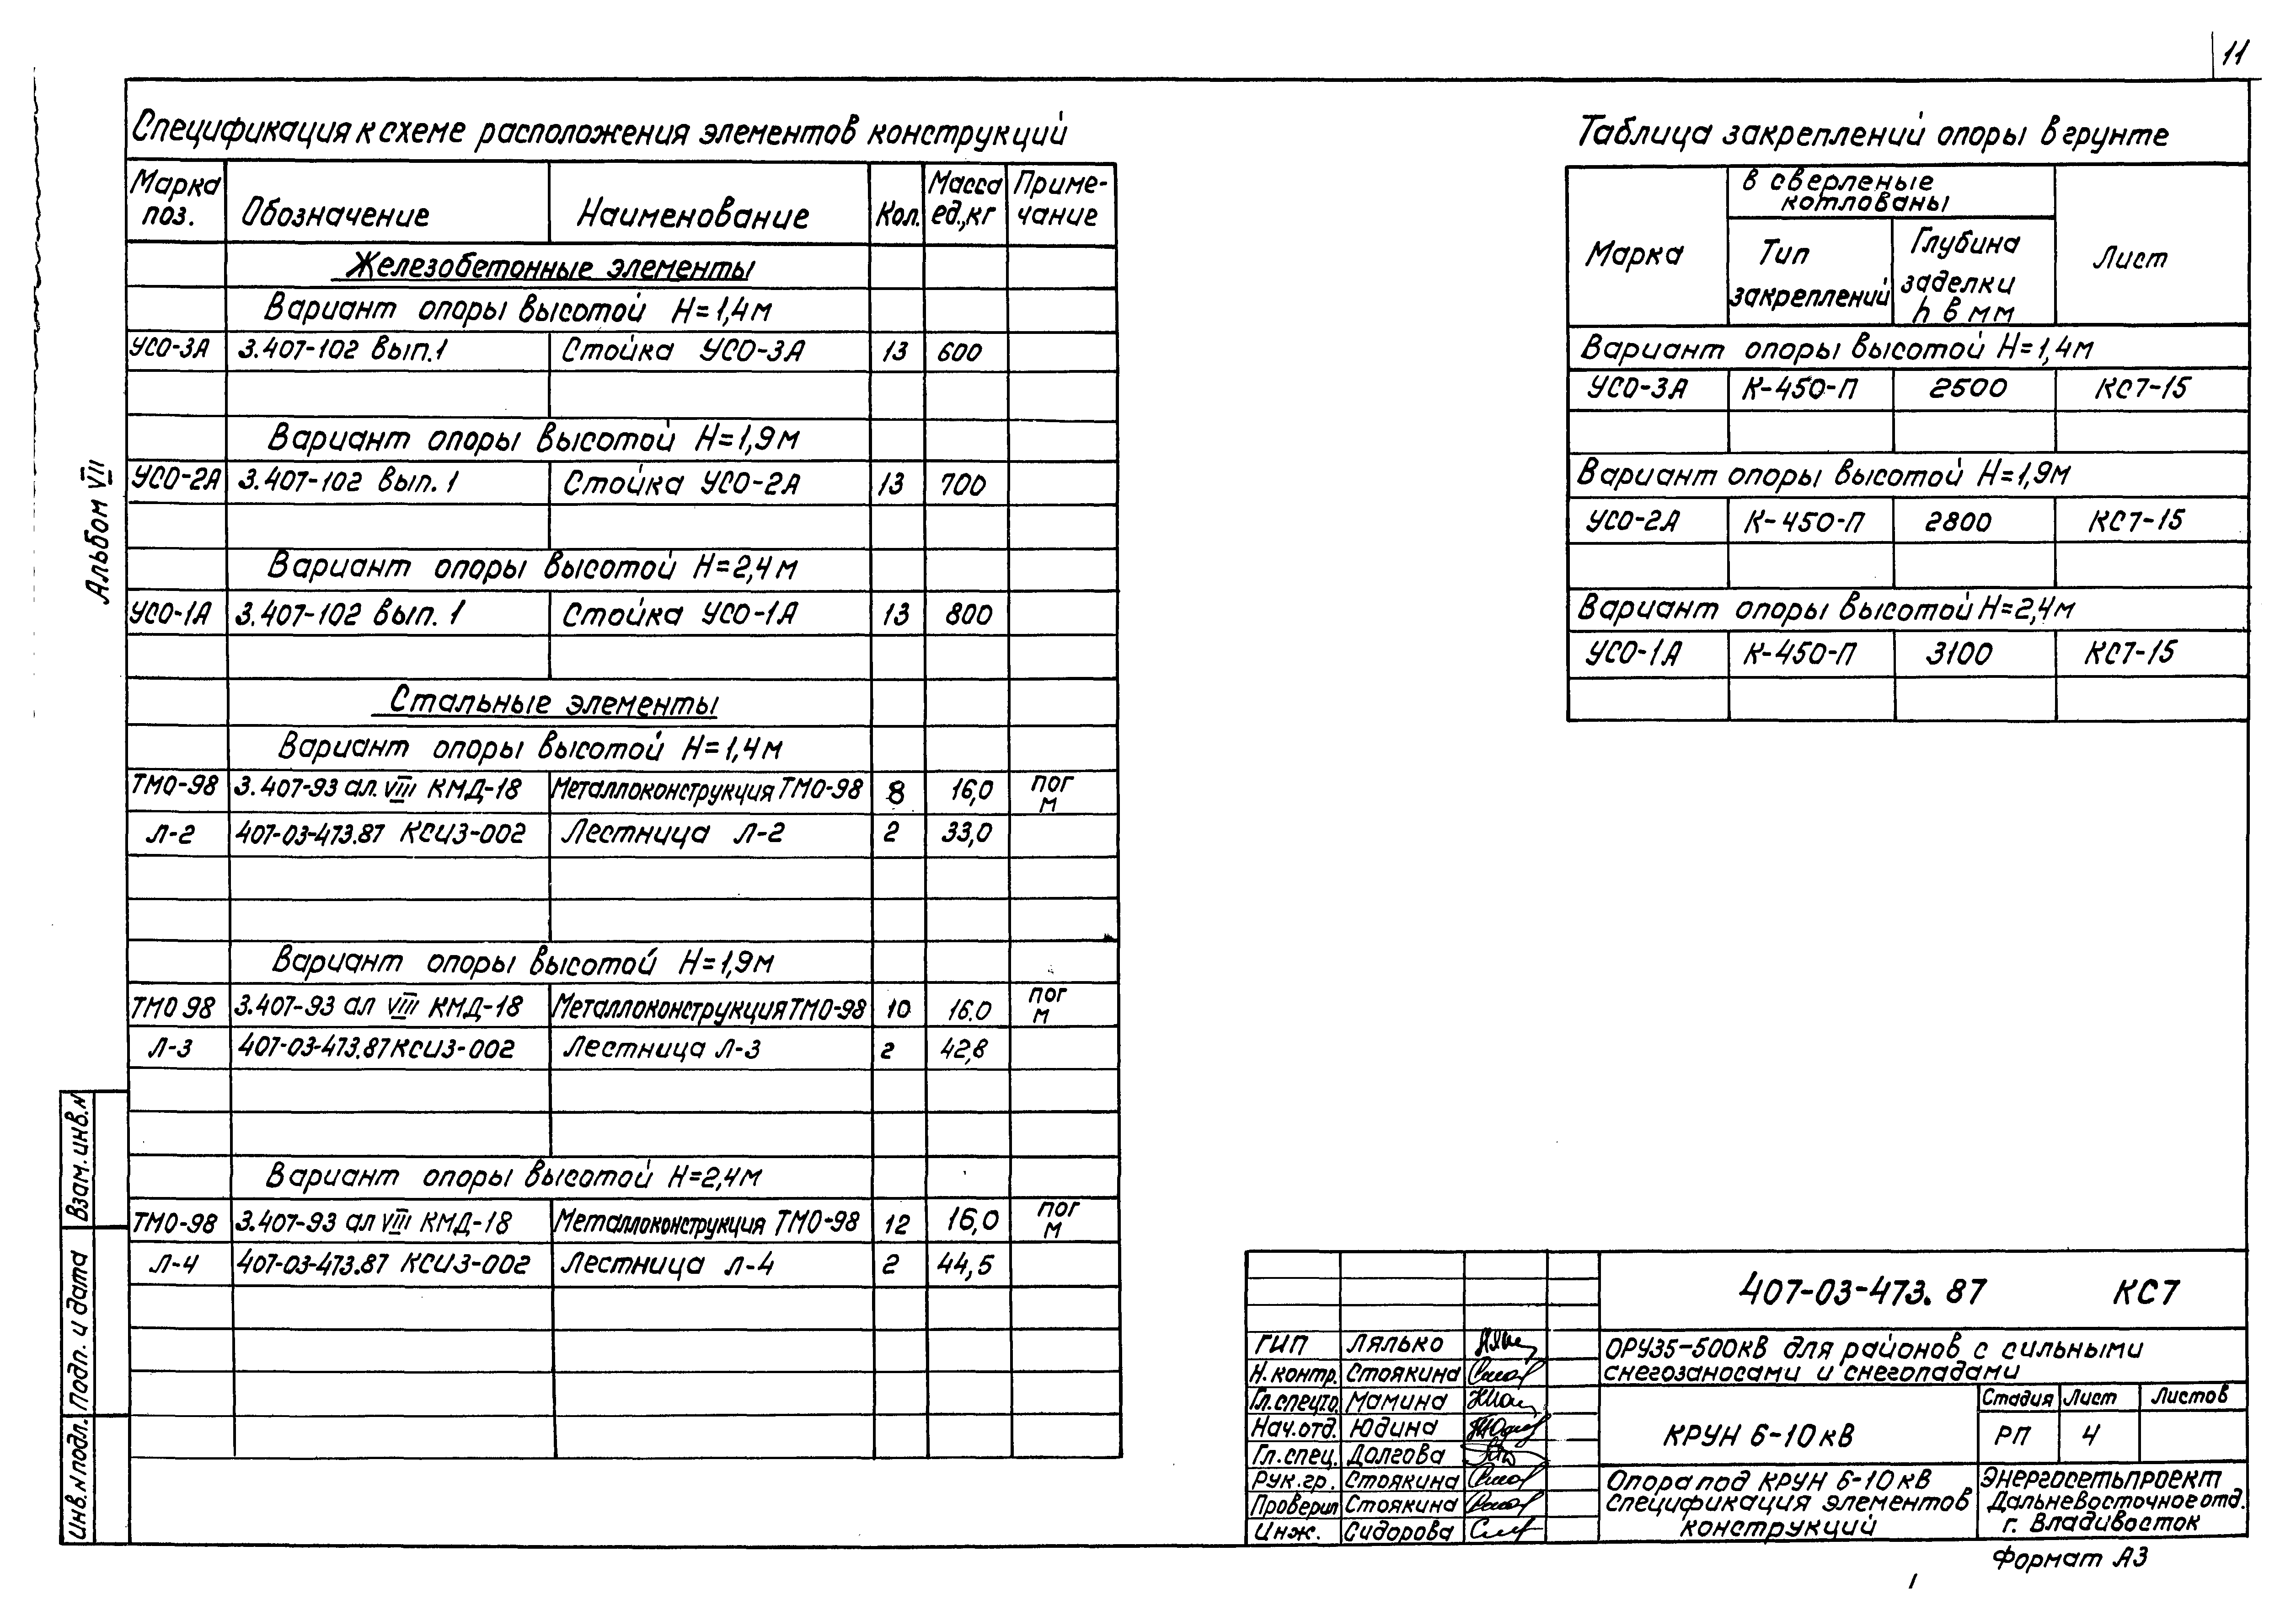 11
Спецификация к схеме расположения элементов конструкций
Марка поз. Обозначение Наименование Кол. Масса ед.,кг Приме-чание
Железобетонные элементы
Вариант опоры высотой Н=1,4м
УСО-3А 3.407-102 вып.1 Стойка УСО-3А 13 600
Вариант опоры высотой Н=1,9м
УСО-2А 3.407-102 вып.1 Стойка УСО-2А 13 700
Вариант опоры высотой Н=2,4м
УСО-1А 3.407-102 вып.1 Стойка УСО-1А 13 800
Стальные элементы
Вариант опоры высотой Н=1,4м
ТМО-98 3.407-93 ал. VIII КМД-18 Металлоконструкция ТМО-98 8 16,0 пог м
Л-2 407-03-473.87 КСИ3-002 Лестница Л-2 2 33,0
Вариант опоры высотой Н=1,9м
ТМО 98 3.407-93 ал VIII КМД-18 Металлоконструкция ТМО-98 10 16.0 пог м
Л-3 407-03-473.87 КСИ3-002 Лестница Л-3 2 42,8
Вариант опоры высотой Н=2,4м
ТМО-98 3.407-93 ал VIII КМД-18 Металлоконструкция ТМО-98 12 16,0 пог м
Л-4 407-03-473.87 КСИ3-002 Лестница Л-4 2 44,5
Таблица закреплений опоры в грунте
Марка
в сверленые
котлованы
Тип
закреплений
Глубина
заделки
h в мм
Лист
Вариант опоры высотой Н=1,4м
УСО-3А К-450-П 2500 КС7-15
Вариант опоры высотой Н=1,9м
УСО-2А К-450-П 2800 КС7-15
Вариант опоры высотой Н=2,4м
УСО-1А К-450-П 3100 КС7-15
Альбом VII
Взам. инв.N
Подп. и дата
Инв.N подл.
407-03-473.87 КС7
ГИП Лялько
Н.контр. Стоякина
Гл.спец.то. Мамина
Нач.отд. Юдина
Гл.спец. Далгова
Рук.гр. Стоякина
Проверил Стоякина
Инж. Сидорова
ОРУ35-500кВ для районов с сильными
снегозаносами и снегопадами
КРУН 6-10кВ
Стадия Лист Листов
РП 4
Опора под КРУН 6-10кВ
Спецификация элементов
конструкций
Энергосетьпроект
Дальневосточное отд.
г. Владивосток
Формат А3